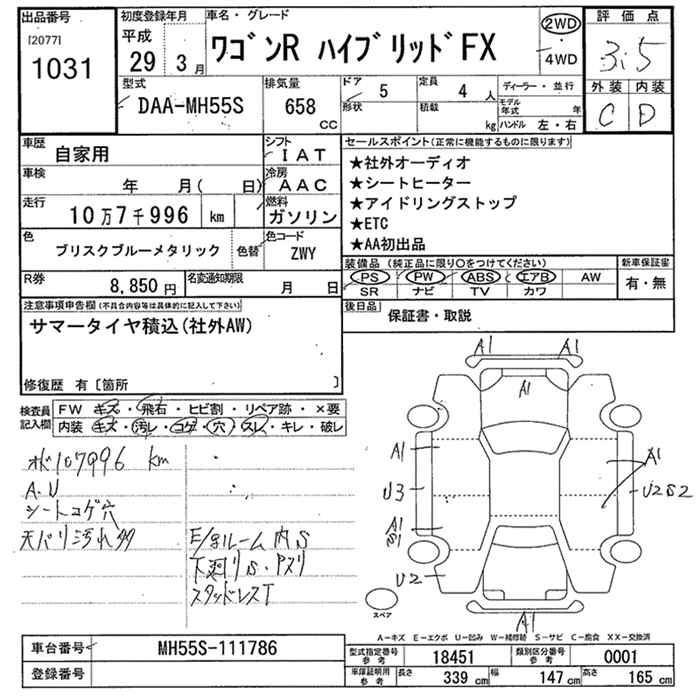 出品番号
[2077]
1031
初度登録年月
平成
29 3月
車名・グレード
ワゴンR ハイブリッドFX
2WD
・
4WD
評価点
3.5
外装 内装
C D
型式
DAA-MH55S
排気量
658 CC
ドア 5
形状
定員 4 人
積載 kg
ディーラー・並行
モデル年式 年
ハンドル 左・右
車歴
自家用
シフト
IAT
車検
年 月( 日)
冷房
AAC
走行
10万7千996 km
燃料
ガソリン
色
ブリスクブルーメタリック
色替
色コード
ZWY
R券
8,850円
名変通知期限
月 日
セールスポイント(正常に機能するものに限ります)
★社外オーディオ
★シートヒーター
★アイドリングストップ
★ETC
★AA初出品
装備品(純正品に限り○をつけてください)
PS PW ABS エアB AW
SR ナビ TV カワ
新車保証書
有・無
後日品
保証書・取説
注意事項申告欄(不具合内容等は具体的に記入して下さい)
サマータイヤ積込(社外AW)
修復歴 有〔箇所 〕
検査員記入欄
FW キズ・飛石・ヒビ割・リペア跡・×要
内装 キズ・汚レ・コゲ・穴・スレ・キレ・破レ
オド107996 km
A.U
シートコゲ穴
天バリ汚れ多
E/gルーム内S
下廻りS・アズリ
スタッドレスT
A1 A1
A1
A1 A1
U3 U2S2
A1
S1
U2
A1
スペア
A-キズ E-エクボ U-凹み W-補修跡 S-サビ C-腐食 XX-交換済
車台番号
MH55S-111786
登録番号
型式指定番号 参考 18451
類別区分番号 参考 0001
車庫証明用 参考 長さ 339 cm 幅 147 cm 高さ 165 cm